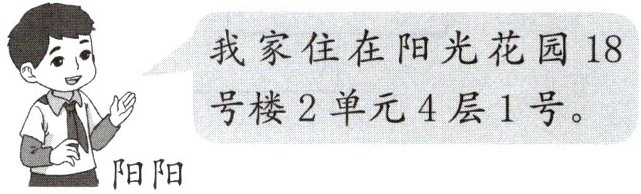 我家住在阳光花园18
号楼2单元4层1号。
阳阳